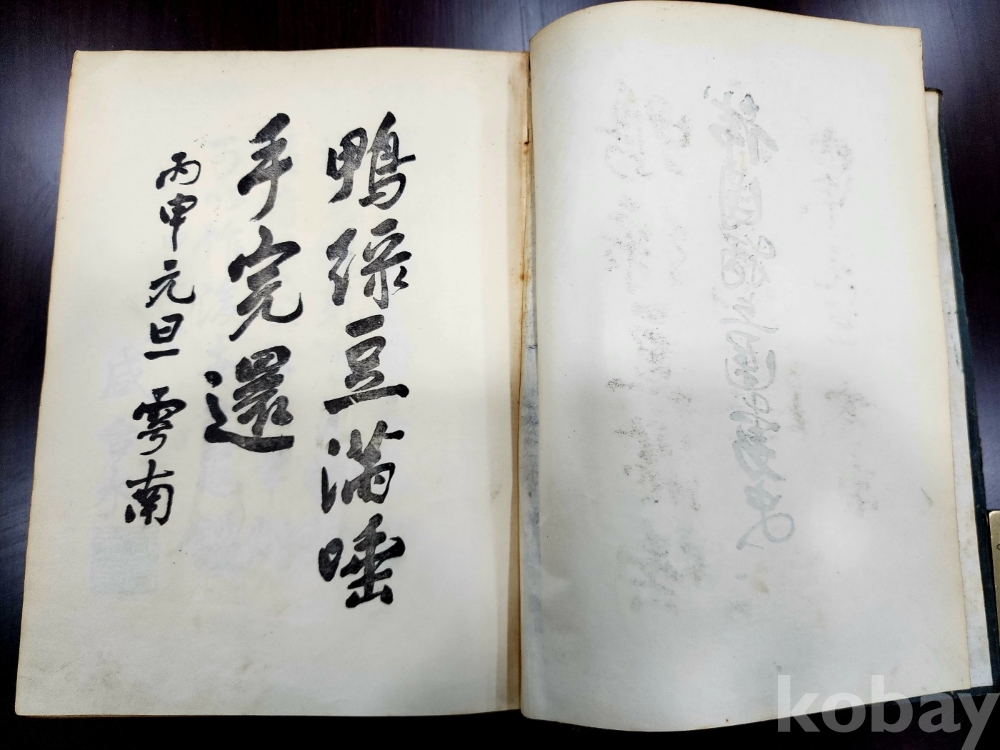 鴨綠豆滿唾
手完還
丙申元旦 雩南
kobay